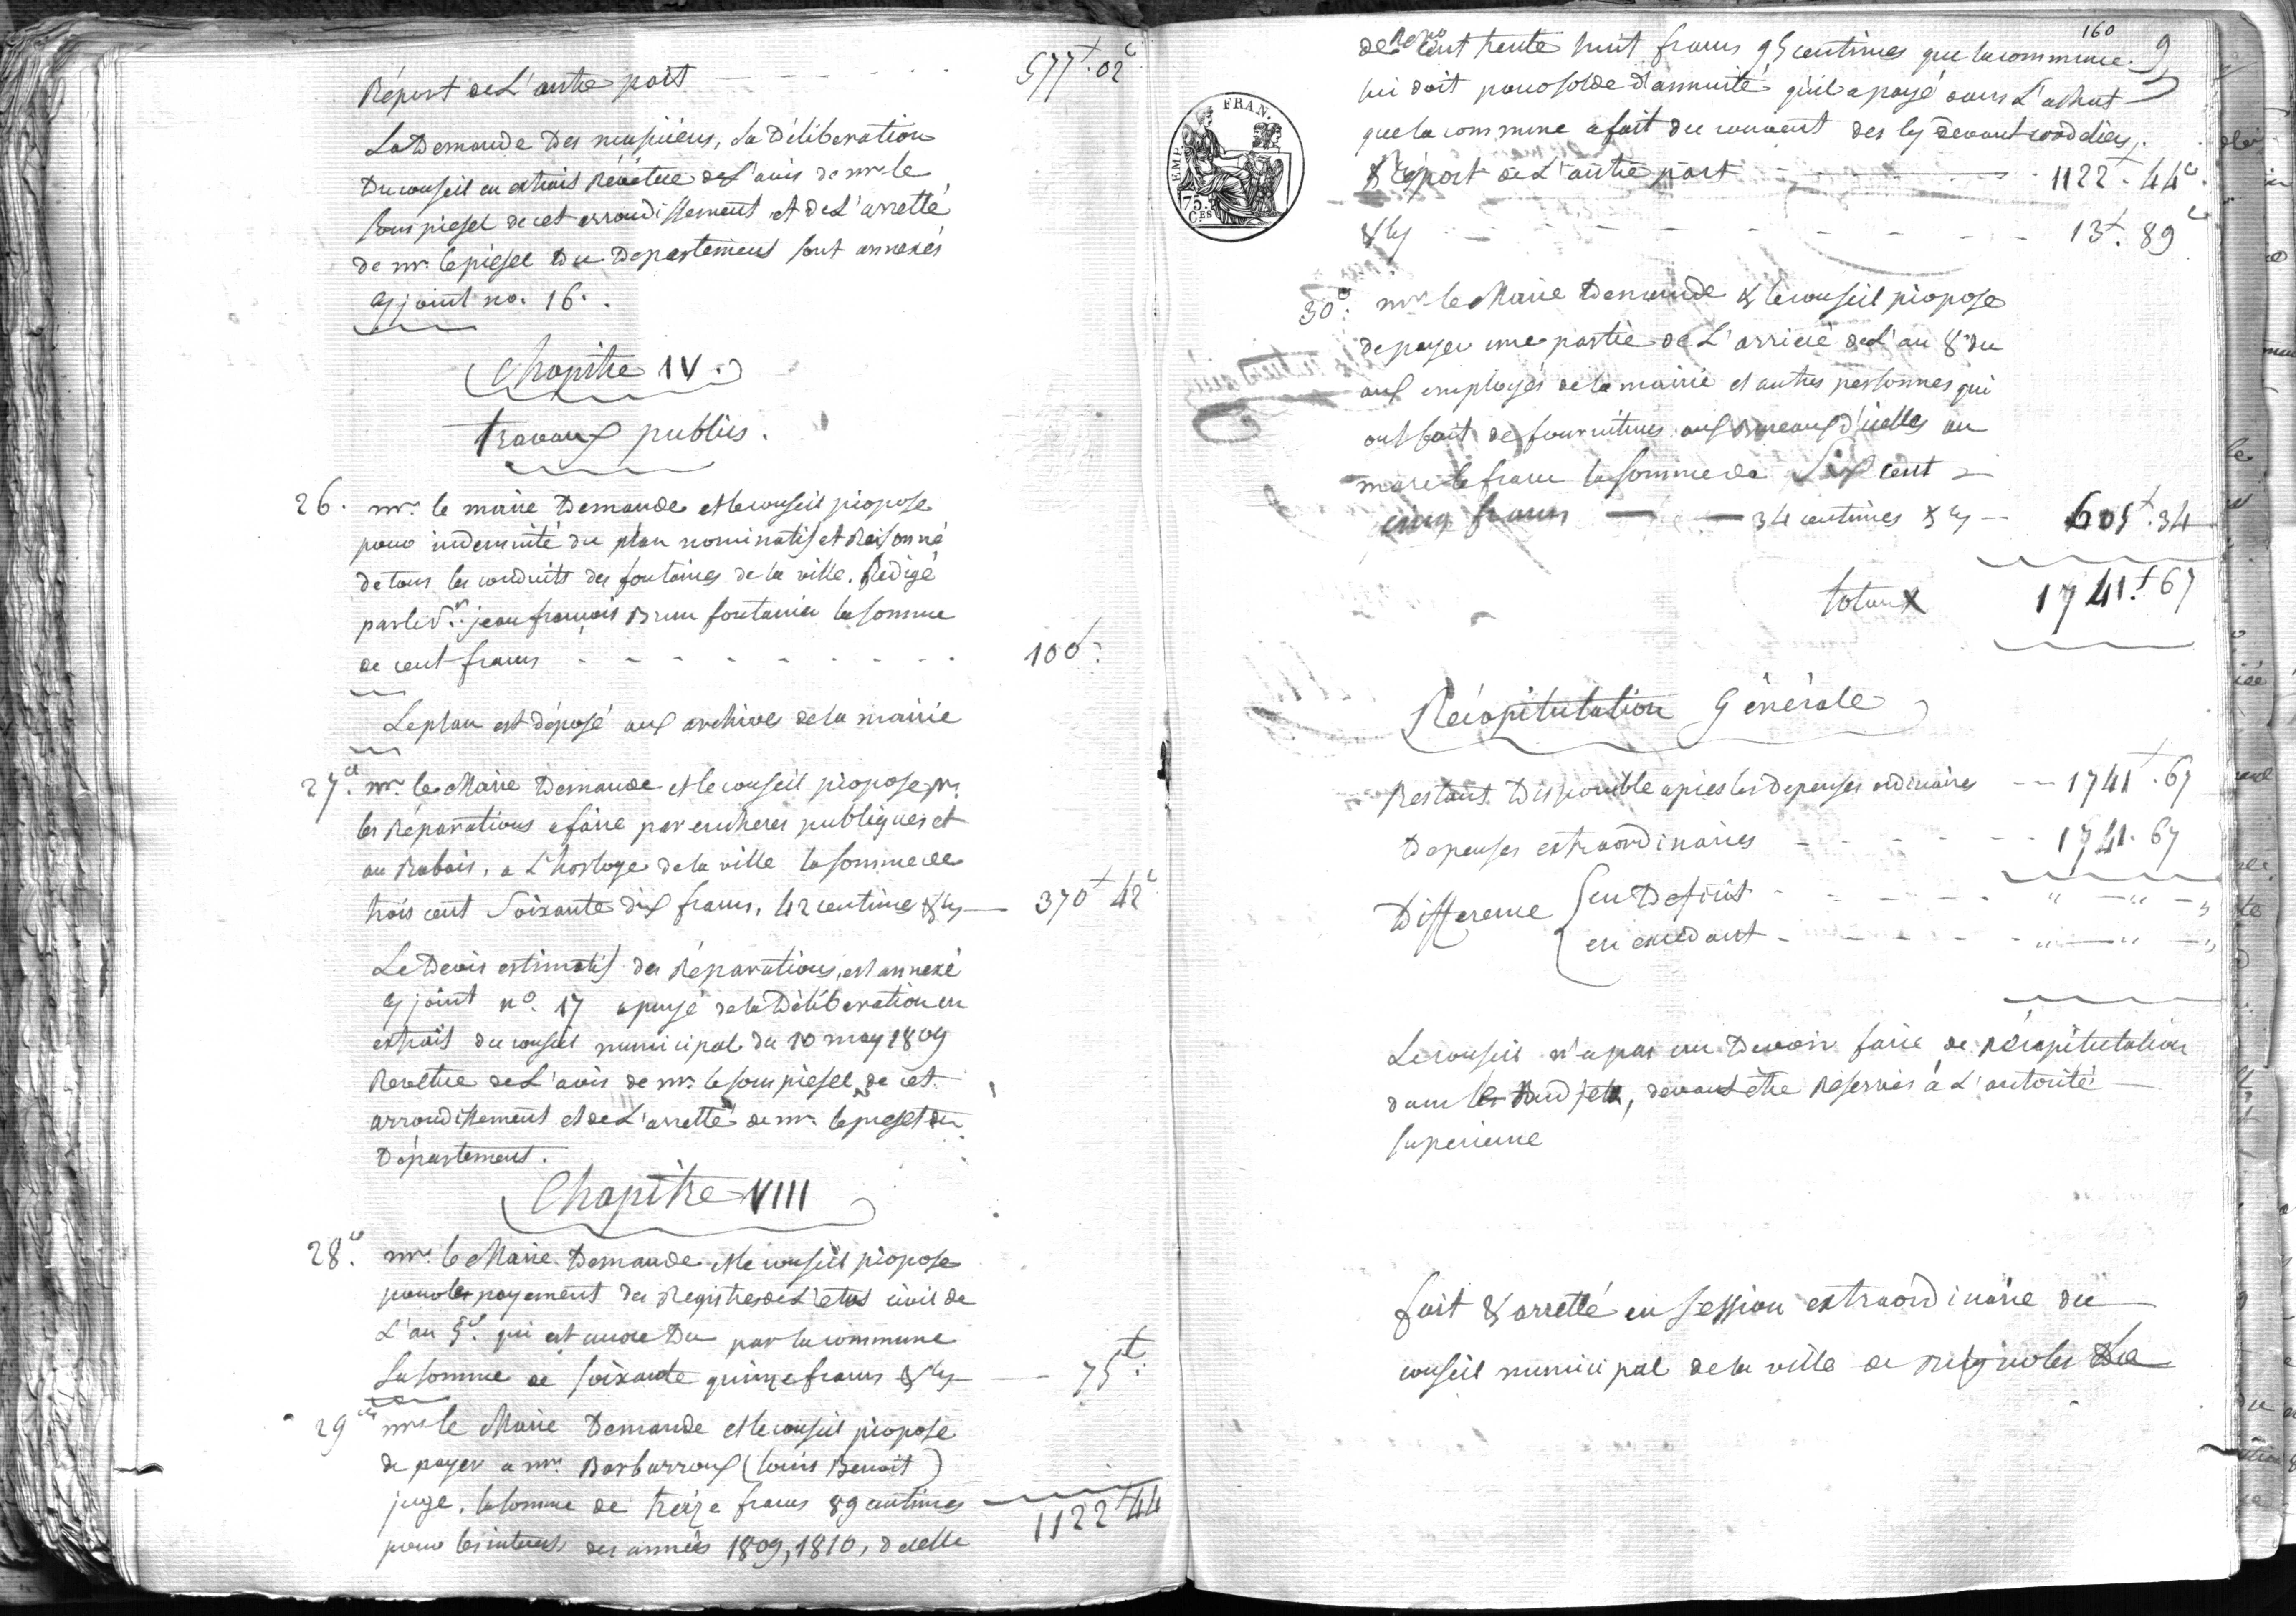 Réport de L'autre part - - - - - 577ᵗ. 02ᶜ
La Demande Des musiciens, La Déliberation
Du conseil en extrait Révêtue de L'avis de mr. le
souspréfet de cet arrondissement et de L'arretté
de mr. le préfet Du Departement sont annexés
cy joint no. 16.
Chapitre IV.
Travaux publics.
26. mr. le maire Demande et le conseil propose
pour indemnité du plan nominatif et Raisonné
de tous les conduits des fontaines de la ville. Redigé
par le Sr. jean françois Brun fontainier la somme
de cent francs - - - - - - - - 100ᵗ.
Le plan est déposé aux archives de la mairie
27.º mr. le Maire Demande et le conseil propose pr.
les Réparations a faire par encheres publiques et
au Rabais, a L'horloge de la ville la somme de
trois cent Soixante dix francs, 42 centimes & cy — 370ᵗ 42ᶜ
Le Devis estimatif des Réparations, est annexé
cy joint nº. 17 apuyé de la Déliberation en
extrait du conseil municipal du 10 may 1809
Revêtue de L'avis de mr. le sous préfet de cet
arrondissement et de L'arretté de mr. le prefet du
Département.
Chapitre VIII
28.º mr. le Maire Demande et le conseil propose
pour le payement des Registres de L'etat civil de
L'an 9º. qui est encore Du par la commune
La somme de soixante quinze francs & cy — 75ᵗ.
29º mr. le Maire Demande et le conseil propose
de payer a mr. Barbarroux (Louis Benoit)
juge, la somme de treize francs 89 centimes
pour les interets des années 1809, 1810, de celle
1122ᵗ 44
160
9
de cent trente huit francs 95 centimes que la commune
lui doit pour solde d'annuité qu'il a payé dans L'achat
que la commune a fait du couvent des cy devant cordeliers.
Réport de L'autre part - - - - 1122ᵗ. 44ᶜ.
EMP. FRAN.
75. CES
& cy - - - - - - - - - 13ᵗ. 89ᶜ
30.º mr. le Maire Demande & le conseil propose
de payer une partie de L'arrieré de L'an 8 du
aux employés de la mairie et autres personnes qui
ont fait de fournitures aux Bureaux d'icelles au
marc le franc la somme de Six cent
cinq francs — — 34 centimes & cy — 605ᵗ. 34
totaux 1741ᵗ. 67
Récapitulation Générale
Restant Disponible apres les Depenses ordinaires - - 1741ᵗ. 67
Depenses extraordinaires - - - - - 1741. 67
Difference { en Deficit - - - - - " — " — "
en excedant - - - - - " — " — "
Le conseil n'a pas cru Devoir faire de Récapitulation
dans le Budjet, devant être Reservées à L'autorité
superieure
fait & arretté en Session extraordinaire du
conseil municipal de la ville de Brignoles